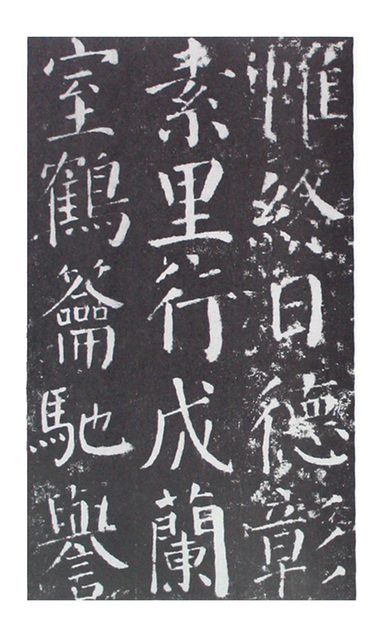 帷終日德彰
素里行成蘭
室鶴籥馳譽